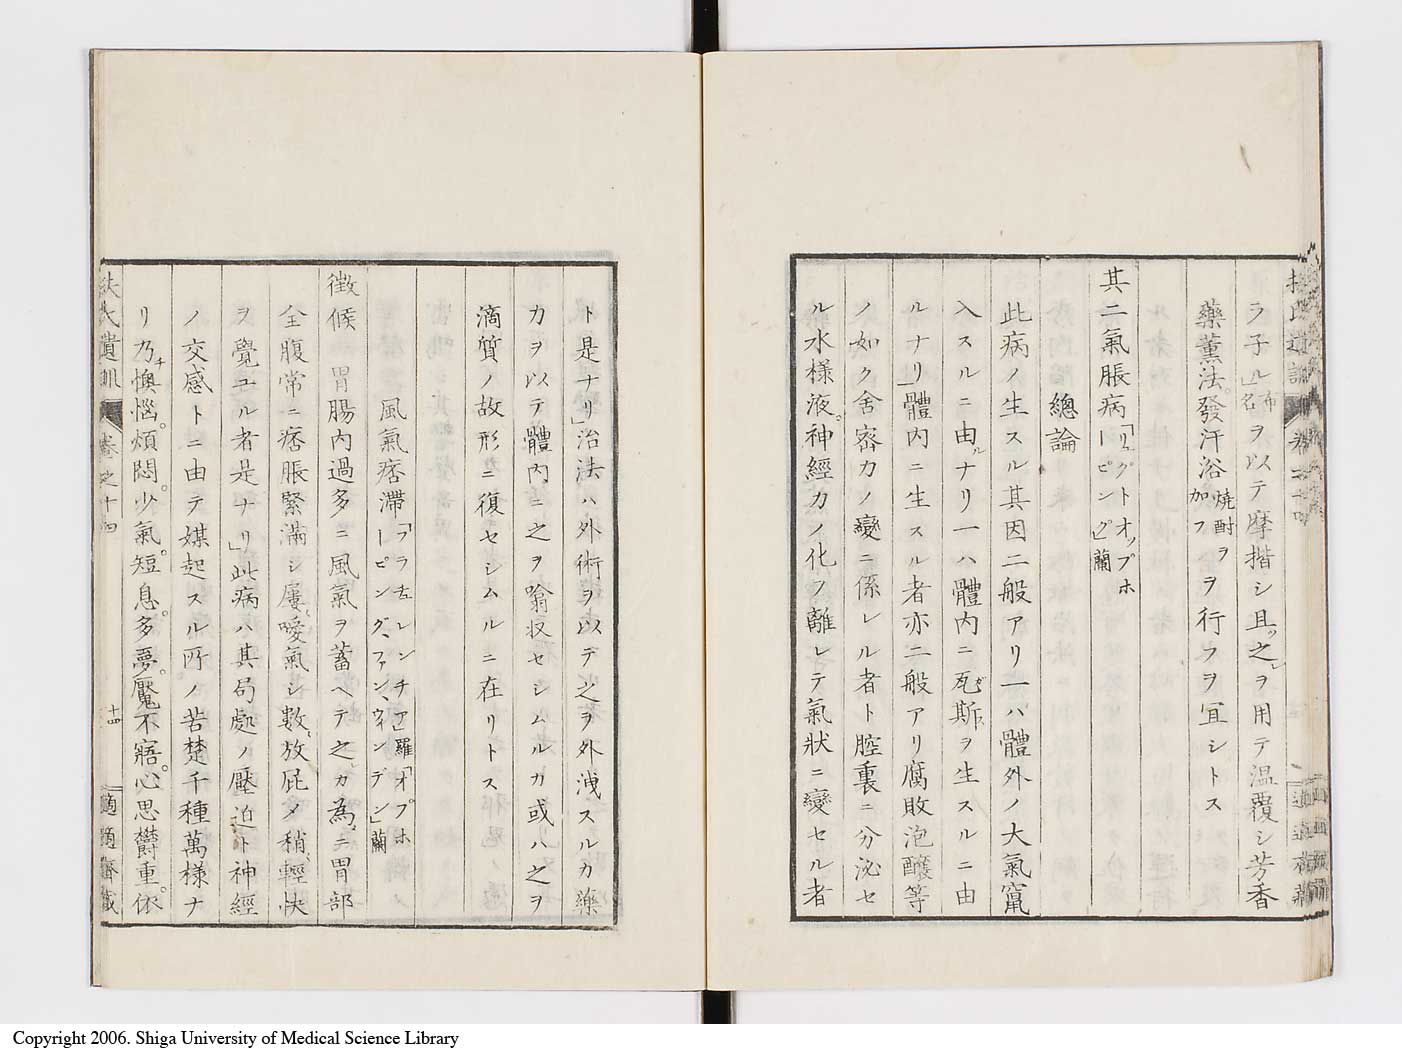 ラ子ル」布名ヲ以テ摩揩シ且ツ之レヲ用テ温覆シ芳香
藥薫法。發汗浴燒酎ヲ加フヲ行フヲ宜シトス
其二氣脹病「リュグトオップホーピング」蘭
總論
此病ノ生スル其因二般アリ一ハ體外ノ大氣竄
入スルニ由ルナリ一ハ體内ニ瓦斯ヲ生スルニ由
ルナリ」體内ニ生スル者亦二般アリ腐敗泡釀等
ノ如ク舍密力ノ變ニ係レル者ト腔裏ニ分泌セ
ル水樣液。神經力ノ化ヲ離レテ氣狀ニ變セル者
扶氏遺訓 卷之十四 十四 適適齋藏
ト是ナリ」治法ハ外術ヲ以テ之ヲ外洩スルカ藥
力ヲ以テ體内ニ之ヲ噏収セシムルカ或ハ之ヲ
滴質ノ故形ニ復セシムルニ在リトス
風氣痞滞「フラチュレンチア」羅「オプホーピング、ファン、ウィンデン」蘭
徴候 胃腸内過多ニ風氣ヲ蓄ヘテ之レカ為ニ胃部
全腹常ニ痞脹緊滿シ屢噯氣シ數放屁シ稍輕快
ヲ覺ユル者是ナリ」此病ハ其局處ノ壓迫ト神經
ノ交感トニ由テ媒起スル所ノ苦楚千種萬樣ナ
リ乃チ懊惱。煩悶。少氣。短息。多夢。魘不寤。心思欝重。依
扶氏遺訓 卷之十四 十四 適適齋藏
Copyright 2006. Shiga University of Medical Science Library